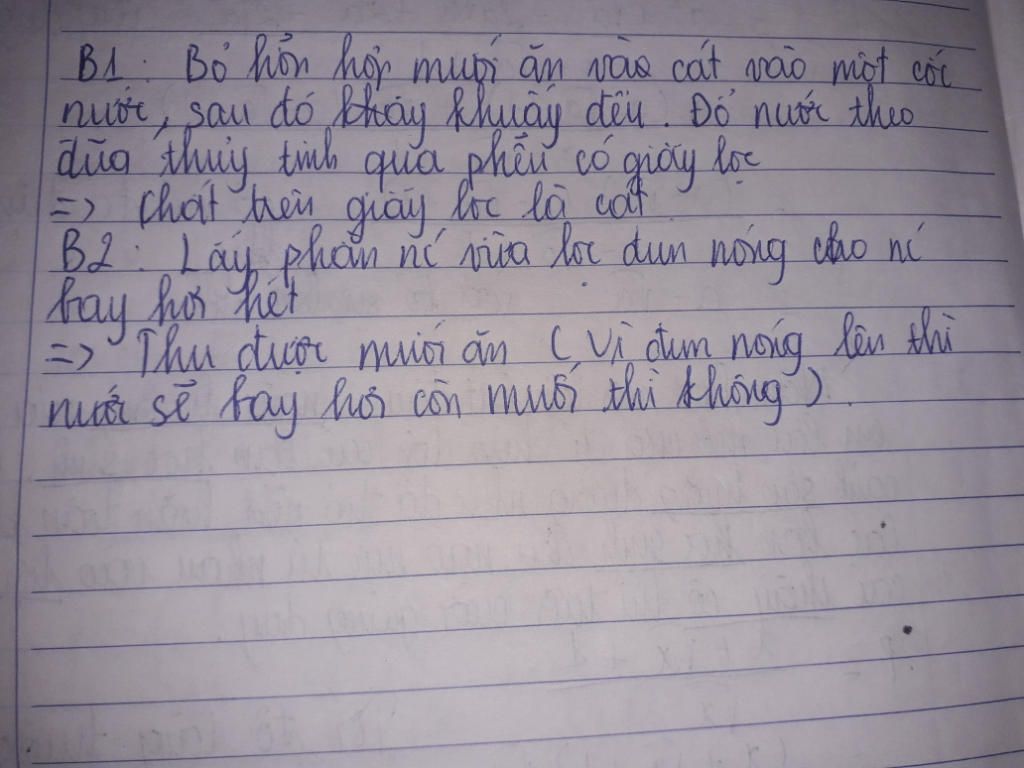 B1: Bỏ hỗn hợp muối ăn vào cát vào một cốc
nước, sau đó khuấy đều. Đổ nước theo
đũa thủy tinh qua phễu có giấy lọc
=> Chất trên giấy lọc là cát
B2: Lấy phần nc vừa lọc đun nóng cho nc
bay hơi hết
=> Thu được muối ăn (Vì đun nóng lên thì
nước sẽ bay hơi còn muối thì không).